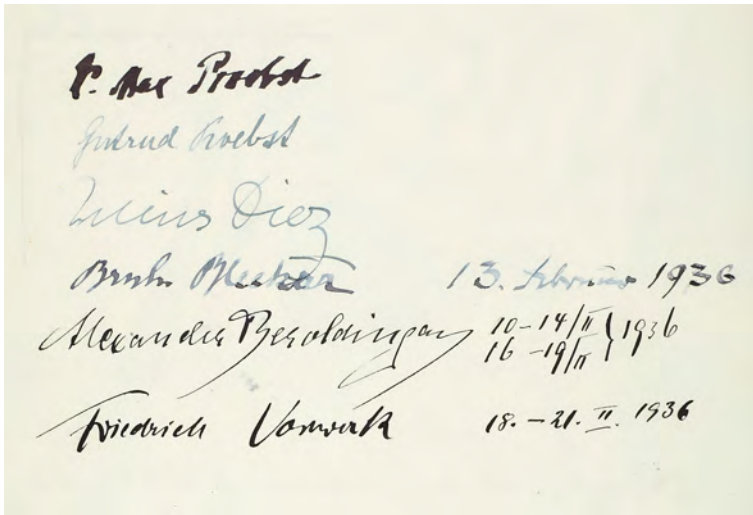 P. Max Proebst
Gertrud Proebst
Julius Diez
Bruno 13. Februar 1936
Alexander Beroldingen 10–14/II } 1936
16–19/II
Friedrich Vorwerk 18.–21. II. 1936